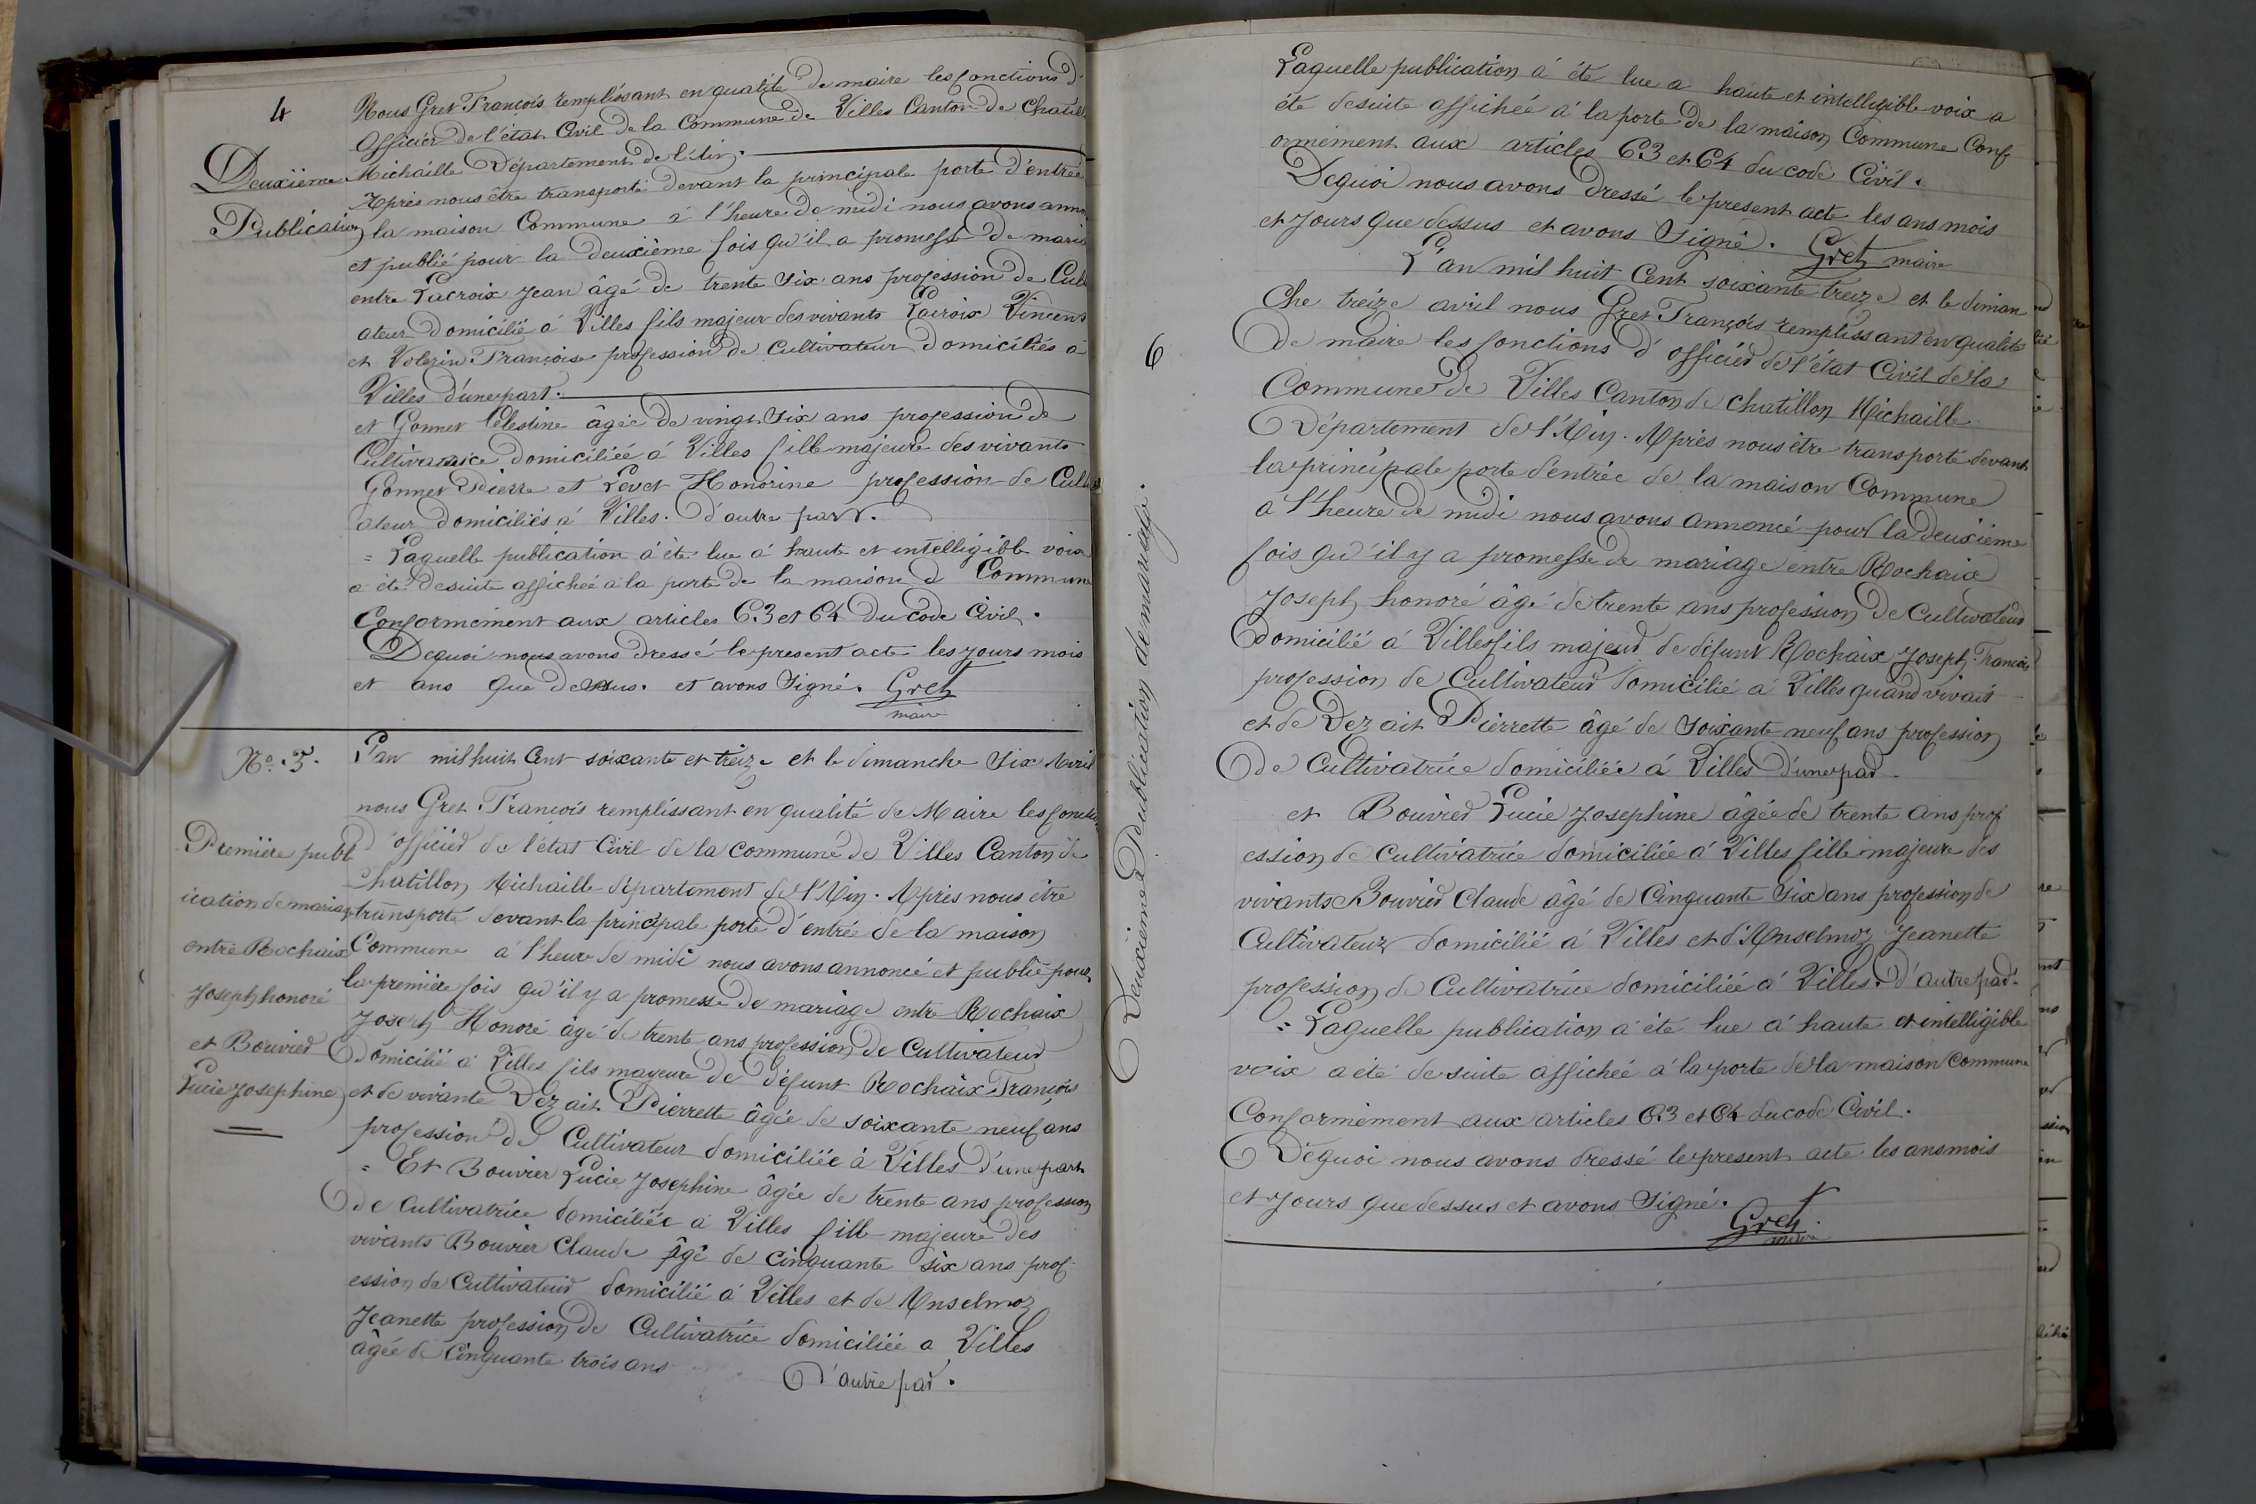 4
Deuxième
Publication
Nous Gret François remplissant en qualité de maire les fonctions d'
Officier de l'état Civil de la Commune de Villes Canton de Chatill
Michaille Département de l'Ain.
Après nous être transporté devant la principale porte d'entrée
la maison Commune à l'heure de midi nous avons anno
et publié pour la deuxième fois qu'il a promesse de maria
entre Lacroix Jean âgé de trente Six ans profession de Cult
ateur domicilié à Villes fils majeur des vivants Lacroix Vincent
et Volerin Françoise profession de Cultivateur domiciliés à
Villes d'une part.
et Gonnet Célestine âgée de vingt Six ans profession de
Cultivatrice domiciliée à Villes fille majeure des vivants
Gonnet Pierre et Levet Honorine profession de Cultiv
ateur domiciliés à Villes. d'autre part.
= Laquelle publication à été lue à haute et intelligible voix
a été desuite affichée à la porte de la maison d Commune
Conformément aux articles 63 et 64 du code Civil.
Dequoi nous avons dressé le present acte les jours mois
et ans que dessus. et avons Signé. Gret
maire
No. 5.
Première publ
ication de mariage
entre Rochaix
Joseph honoré
et Bouvier
Lucie Josephine
L'an mil huit Cent soixante et treize et le dimanche Six Avril
nous Gret François remplissant en qualité de Maire les fonction
d'officier de l'état Civil de la commune de Villes Canton de
Chatillon Michaille département de l'Ain. Après nous être
transporté devant la principale porte d'entrée de la maison
Commune à l'heure de midi nous avons annoncé et publié pour
la première fois qu'il y a promesse de mariage entre Rochaix
Joseph Honoré âgé de trente ans profession de Cultivateur
domicilié à Villes fils mayeure de défunt Rochaix François
et de vivante Dezait Pierrette âgée de soixante neuf ans
profession de Cultivateur domiciliée à Villes d'une part
= Et Bouvier Lucie Josephine âgée de trente ans profession
de Cultivatrice domiciliée à Villes fille majeure des
vivants Bouvier Claude âgé de cinquante six ans prof
ession de Cultivateur domicilié à Villes et de Anselmoz
Jeanette profession de Cultivatrice domiciliée a Villes
âgée de Cinquante trois ans
d'autre part.
Laquelle publication à été lue a haute et intelligible voix a
été desuite affichée à la porte de la maison Commune Conf
ormément aux articles 63 et 64 du code Civil.
Dequoi nous avons dressé le present acte les ans mois
et jours que dessus et avons Signé. Gret maire
6
Deuxième Publication de mariage.
L'an mil huit Cent soixante treize et le diman
che treize avril nous Gret François remplissant en qualité
de maire les fonctions d'officier de l'état Civil de la
Commune de Villes Canton de Chatillon Michaille
Département de l'Ain. Après nous être transporté devant
la principale porte d'entrée de la maison Commune
à l'heure de midi nous avons annoncé pour la deuxième
fois qu'il y a promesse de mariage entre Rochaix
Joseph honoré âgé de trente ans profession de Cultivateur
domicilié à Villes fils majeur de défunt Rochaix Joseph François
profession de Cultivateur domicilié à Villes quand vivait
et de Dezait Pierrette âgé de Soixante neuf ans profession
de Cultivatrice domiciliée à Villes d'une part
et Bouvier Lucie Josephine âgée de trente ans prof
ession de cultivatrice domiciliée à Villes fille majeure des
vivants Bouvier Claude âgé de Cinquante Six ans profession de
Cultivateur domicilié à Villes et d'Anselmoz Jeanette
profession de Cultivatrice domiciliée à Villes. d'autre part.
= Laquelle publication à été lue à haute et intelligible
voix a été de suite affichée à la porte de la maison commune
Conformément aux articles 63 et 64 du code Civil.
Dequoi nous avons dressé le present acte les ans mois
et jours que dessus et avons Signé.
Gret
maire